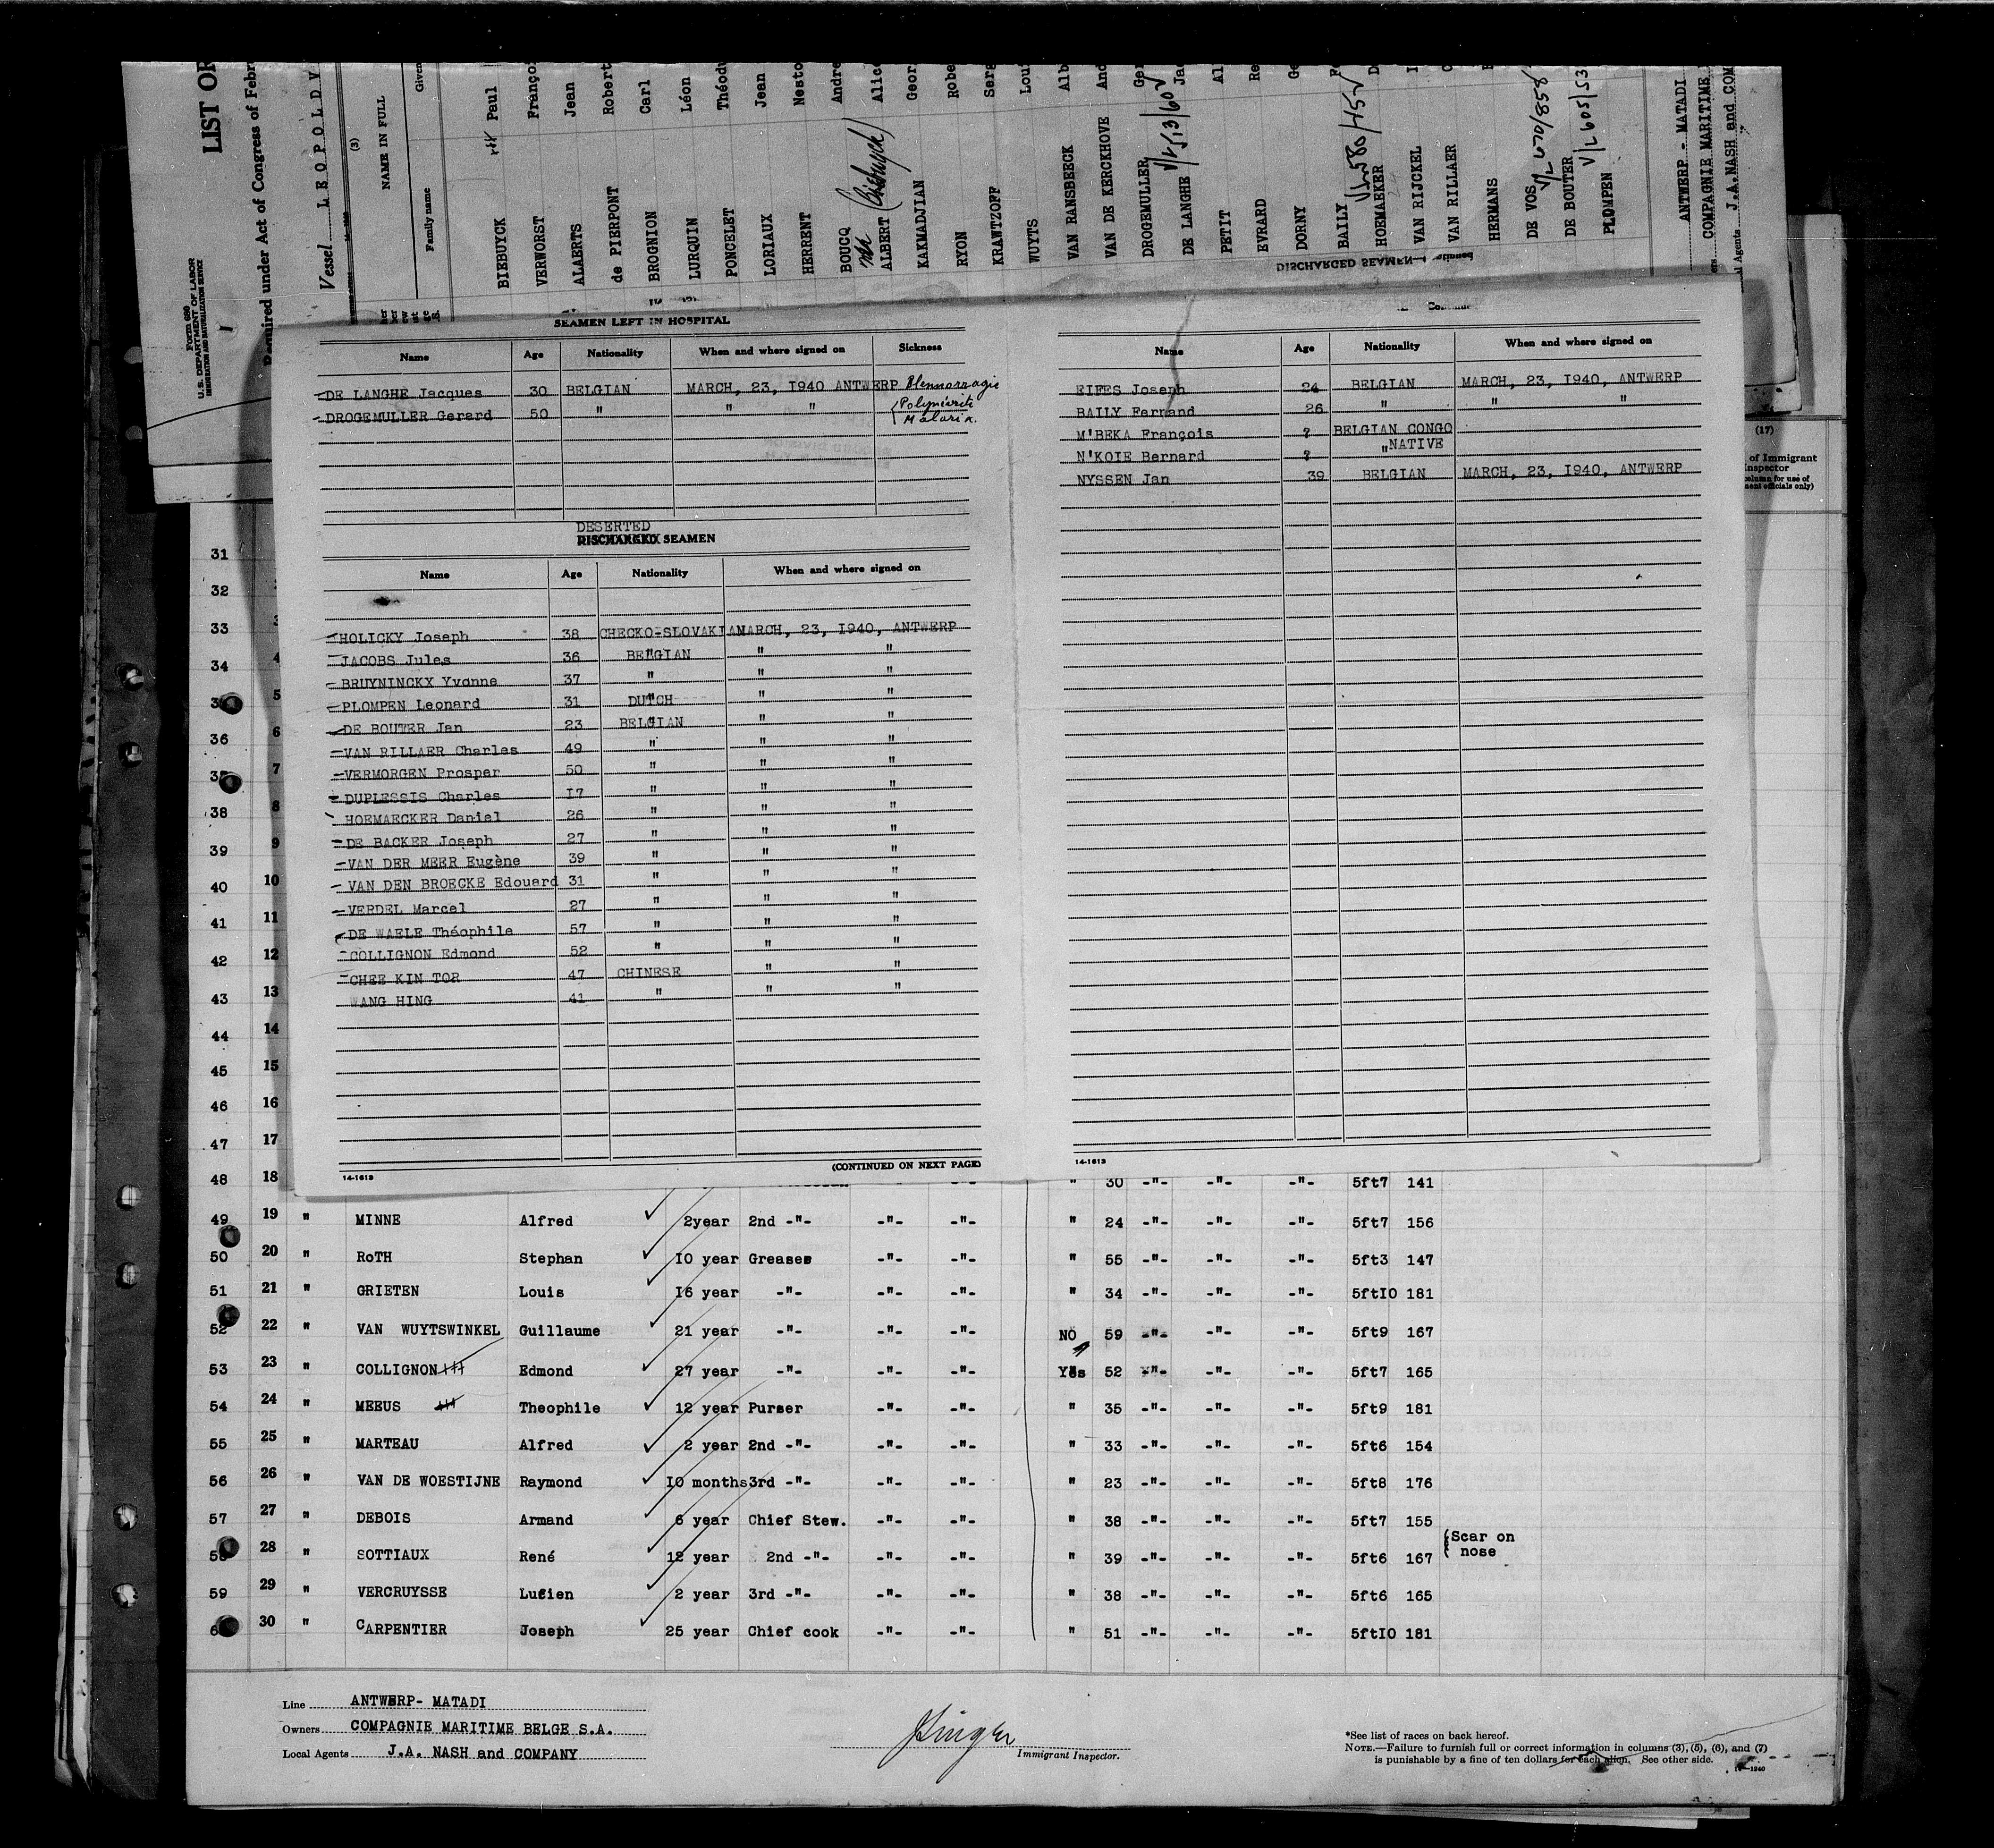 Form 686
U.S. DEPARTMENT OF LABOR
IMMIGRATION AND NATURALIZATION SERVICE
LIST OR
Required under Act of Congress of Febr
Vessel LEOPOLDV
(3)
NAME IN FULL
Family name Given
BIEBUYCK Paul
VERWORST Franço
ALAERTS Jean
de PIERPONT Robert
BROGNION Carl
LURQUIN Léon
PONCELET Théodu
LORIAUX Jean
HERRENT Nesto
BOUCQ Andre
ALBERT Alice
KAKMADJIAN Geor
RYON Robe
KRAWTZOFF Serg
WUYTS Loui
VAN RANSBEECK Alb
VAN DE KERCKHOVE And
DROGEMULLER Ger
DE LANGHE Jac
PETIT Al
EVRARD Re
DORNY Ge
BAILY
HOEMAEKER
VAN RIJCKEL
VAN RILLAER
HERMANS
DE VOS
DE BOUTER
PLOMPEN
ANTWERP - MATADI
COMPAGNIE MARITIME
J.A.NASH and COM
DISCHARGED SEAMEN
SEAMEN LEFT IN HOSPITAL
Name Age Nationality When and where signed on Sickness
DE LANGHE Jacques 30 BELGIAN MARCH, 23, I940 ANTWERP Blennorragie
DROGEMULLER Gerard 50 " " " Polynévrite
Malaria.
DESERTED
DISCHARGED SEAMEN
Name Age Nationality When and where signed on
HOLICKY Joseph 38 CHECKO-SLOVAKIAN MARCH, 23, I940, ANTWERP
JACOBS Jules 36 BELGIAN " "
BRUYNINCKX Yvonne 37 " " "
PLOMPEN Leonard 31 DUTCH " "
DE BOUTER Jan 23 BELGIAN " "
VAN RILLAER Charles 49 " " "
VERMORGEN Prosper 50 " " "
DUPLESSIS Charles I7 " " "
HOEMAECKER Daniel 26 " " "
DE BACKER Joseph 27 " " "
VAN DER MEER Eugène 39 " " "
VAN DEN BROECKE Edouard 31 " " "
VERDEL Marcel 27 " " "
DE WAELE Théophile 57 " " "
COLLIGNON Edmond 52 " " "
CHEE KIN TOR 47 CHINESE " "
WANG HING 41 " " "
14-1613
(CONTINUED ON NEXT PAGE)
Name Age Nationality When and where signed on
EIFES Joseph 24 BELGIAN MARCH, 23, I940, ANTWERP
BAILY Fernand 26 " " "
M'BEKA François ? BELGIAN CONGO
NATIVE
N'KOIE Bernard ? "
NYSSEN Jan 39 BELGIAN MARCH, 23, I940, ANTWERP
14-1613
(17)
of Immigrant
Inspector
column for use of
ment officials only)
31
32
33
34 4
35 5
36 6
37 7
38 8
39 9
40 10
41 11
42 12
43 13
44 14
45 15
46 16
47 17
48 18 " 30 -"- -"- -"- 5ft7 141
49 19 " MINNE Alfred 2year 2nd -"- -"- -"- " 24 -"- -"- -"- 5ft7 156
50 20 " RoTH Stephan I0 year Greases -"- -"- " 55 -"- -"- -"- 5ft3 147
51 21 " GRIETEN Louis I6 year -"- -"- -"- " 34 -"- -"- -"- 5ftI0 181
52 22 " VAN WUYTSWINKEL Guillaume 21 year -"- -"- -"- NO 59 -"- -"- -"- 5ft9 167
53 23 " COLLIGNON Edmond 27 year -"- -"- -"- Yes 52 -"- -"- -"- 5ft7 165
54 24 " MEEUS Theophile 12 year Purser -"- -"- " 35 -"- -"- -"- 5ft9 181
55 25 " MARTEAU Alfred 2 year 2nd -"- -"- -"- " 33 -"- -"- -"- 5ft6 154
56 26 " VAN DE WOESTIJNE Raymond I0 months 3rd -"- -"- -"- " 23 -"- -"- -"- 5ft8 176
57 27 " DEBOIS Armand 6 year Chief Stew. -"- -"- " 38 -"- -"- -"- 5ft7 155
58 28 " SOTTIAUX René 12 year 2nd -"- -"- -"- " 39 -"- -"- -"- 5ft6 167 Scar on
nose
59 29 " VERCRUYSSE Lucien 2 year 3rd -"- -"- -"- " 38 -"- -"- -"- 5ft6 165
30 " CARPENTIER Joseph 25 year Chief cook -"- -"- " 51 -"- -"- -"- 5ftI0 181
Line ANTWERP- MATADI
Owners COMPAGNIE MARITIME BELGE S.A.
Local Agents J.A. NASH and COMPANY
Immigrant Inspector.
*See list of races on back hereof.
NOTE.—Failure to furnish full or correct information in columns (3), (5), (6), and (7)
is punishable by a fine of ten dollars for each alien. See other side.
14—1240